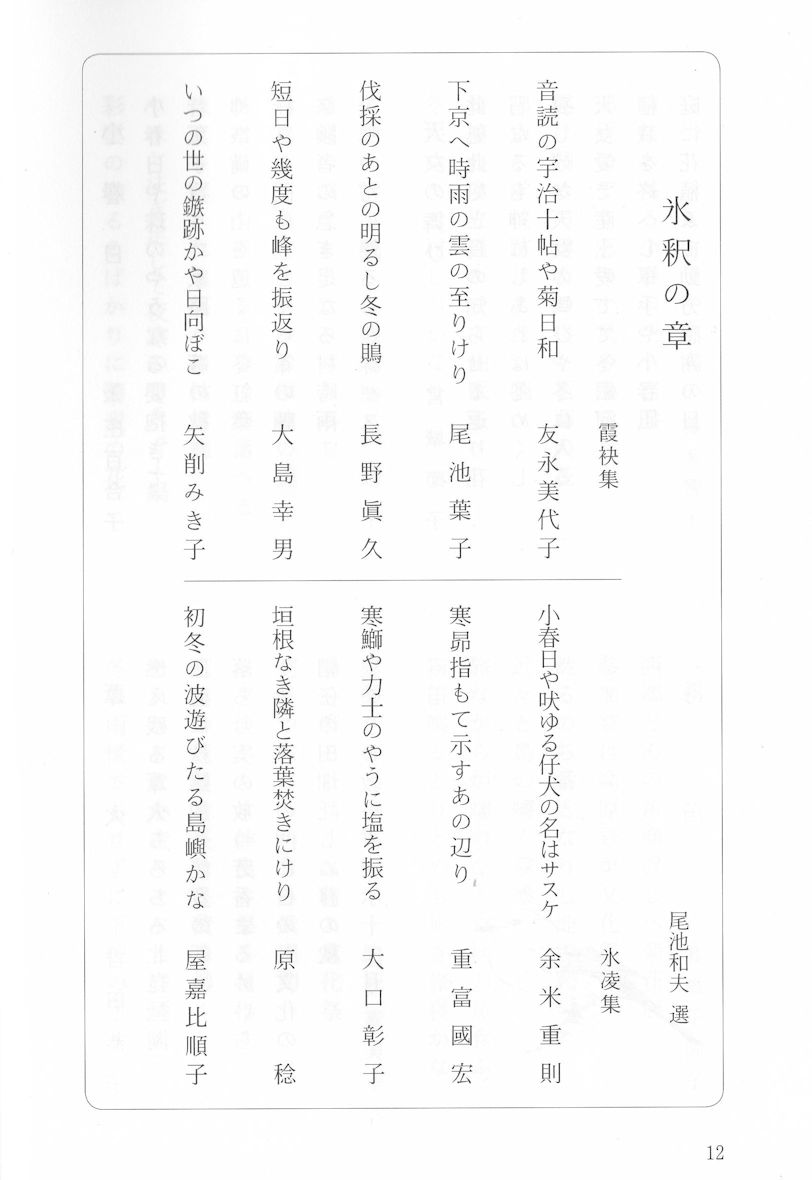 氷釈の章
尾池和夫 選
霞袂集
音読の宇治十帖や菊日和 友永美代子
下京へ時雨の雲の至りけり 尾池葉子
伐採のあとの明るし冬の鵙 長野眞久
短日や幾度も峰を振返り 大島幸男
いつの世の鏃跡かや日向ぼこ 矢削みき子
氷凌集
小春日や吠ゆる仔犬の名はサスケ 余米重則
寒昴指もて示すあの辺り 重富國宏
寒鰤や力士のやうに塩を振る 大口彰子
垣根なき隣と落葉焚きにけり 原 稔
初冬の波遊びたる島嶼かな 屋嘉比順子
12